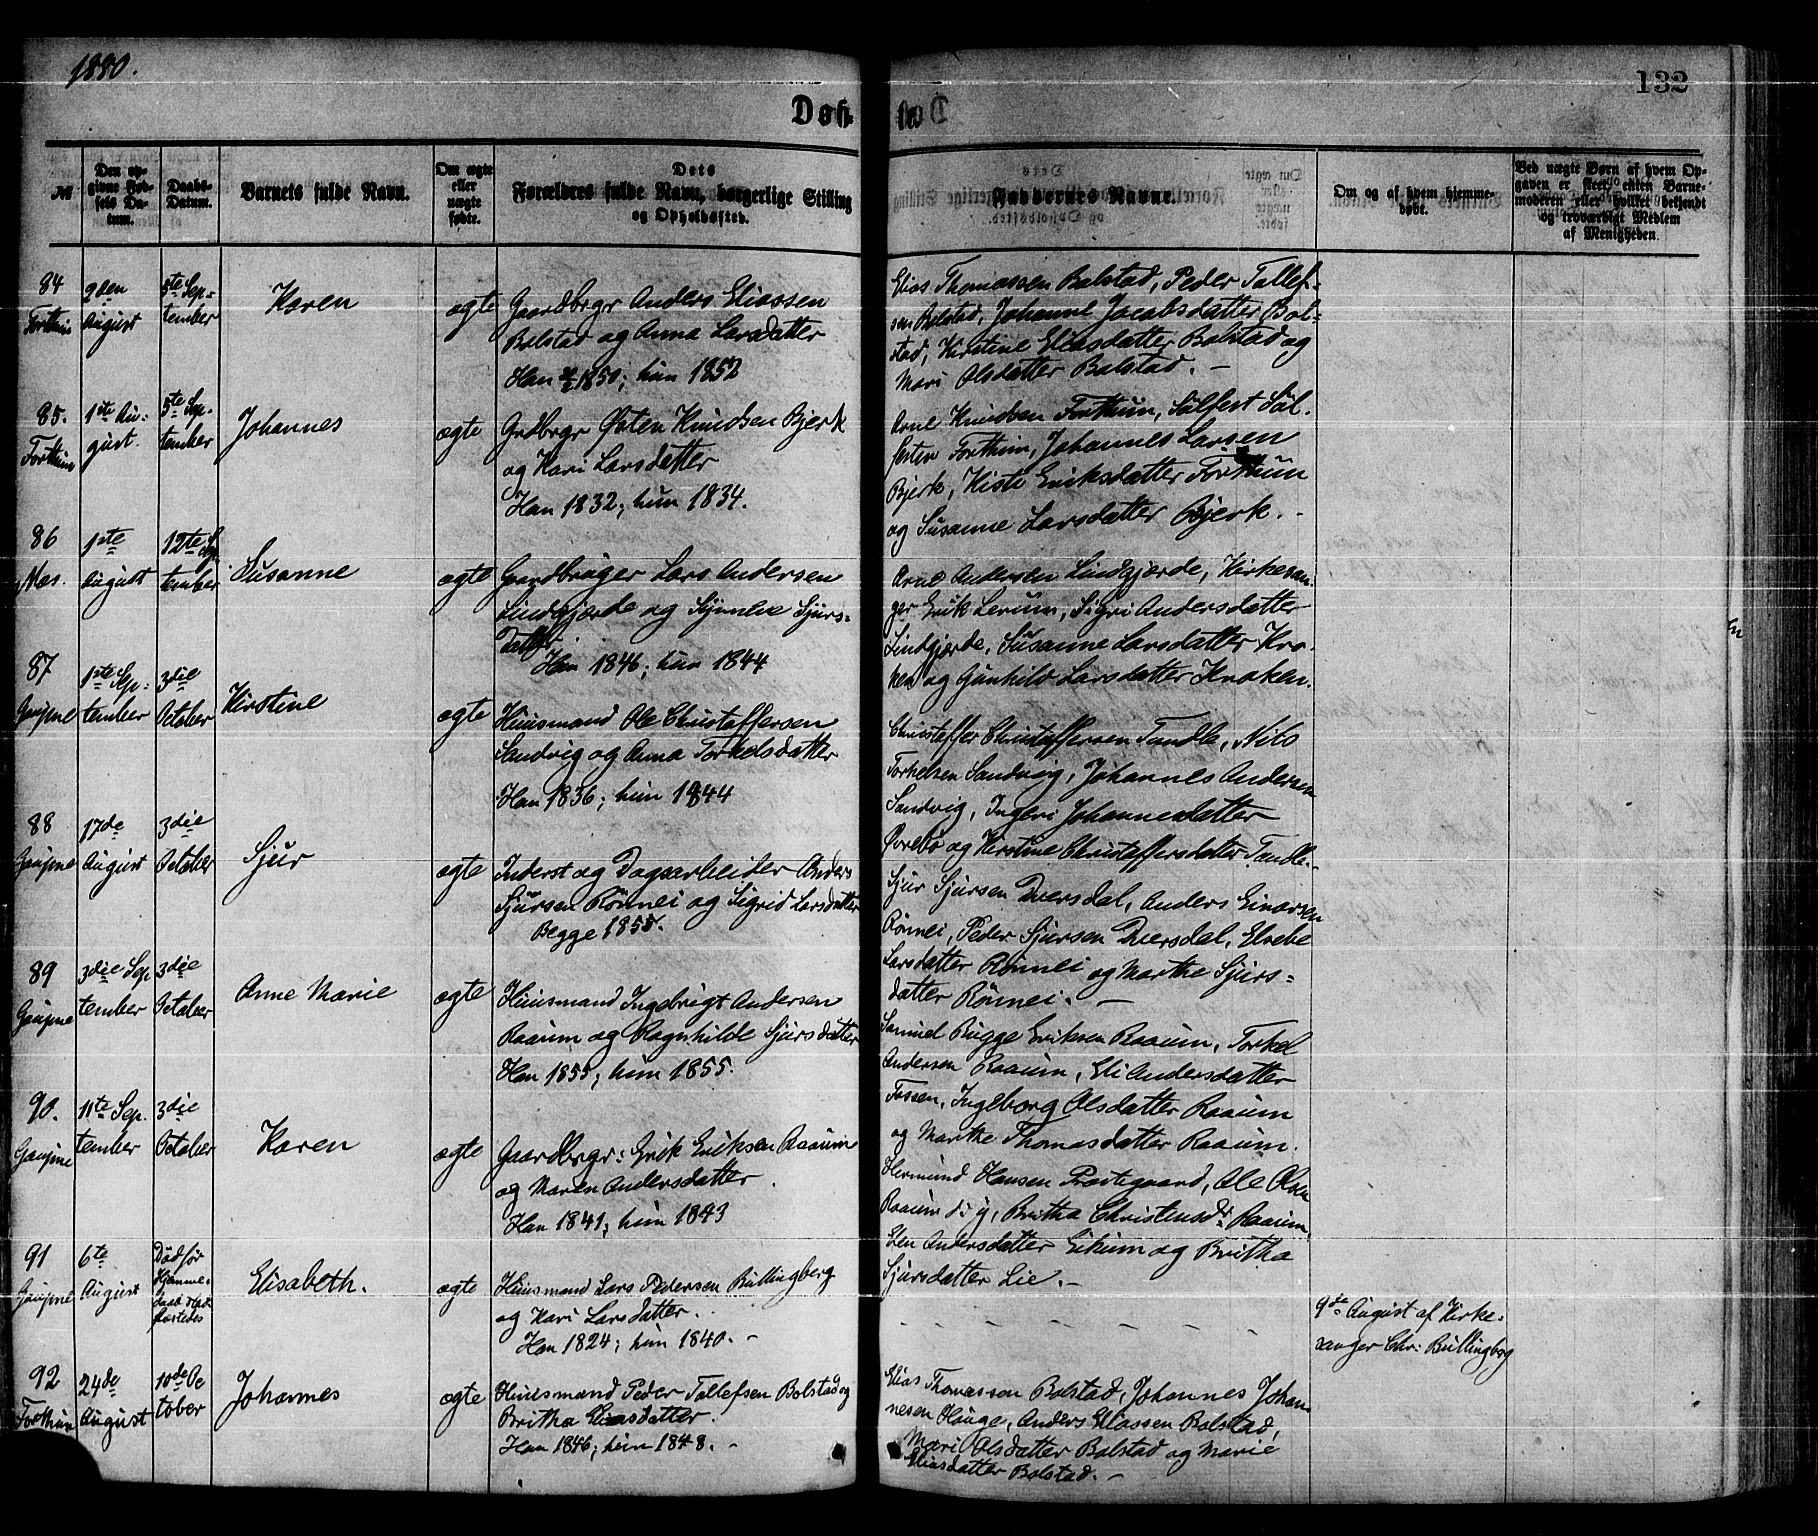 1880.
132
Døb
№
Den op-
givne Fød-
sels Da-
tum.
Daabs-
Datum.
Barnets fulde Navn.
Om ægte
eller
uægte
fødte.
Dets
Forældres fulde Navn, borgerlige Stilling
og Opholdssted.
Faddernes Navne.
Om og af hvem hjemme-
døbt.
Ved uægte Børn af hvem Op-
gaven er skeet, enten Barne-
moderen eller hvilket bekjendt
og troværdigt Medlem
af Menigheden.
84
Forthun
2den
August
5te Sep-
tember
Karen
ægte
Gaardbrgr Anders Eliassen
Bolstad og Anna Larsdatter
Han 1850; hun 1852
Elias Thomassen Bolstad, Peder Tollef-
sen Bolstad, Johanne Jacobsdatter Bol-
stad, Kirstine Eliasdatter Bolstad og
Mari Olsdatter Bolstad. —
85.
Forthun
1ste Au-
gust.
5te Sep-
tember
Johannes
ægte
Grdbrgr Østen Knudsen Bjerk
og Kari Larsdatter
Han 1832; hun 1834.
Arne Knudsen Forthun, Sølfest Søl-
festen Forthun, Johannes Larsen
Bjerk, Kiste Eriksdatter Forthun
og Susanne Larsdatter Bjerk. -
86
Næs.
1ste
August
12te Sep-
tember
Susanne
ægte
Gaardbruger Lars Andersen
Lindgjerde og Synneve Sjurs-
datter
Han 1846; hun 1844
Arne Andersen Lindgjerde, Kirkesan-
ger Erik Lerum, Sigri Andersdatter
Lindgjerde, Susanne Larsdatter Kro-
ken og Gunhild Larsdatter Kroken.
87
Gaupne
1ste Sep-
tember
3die
October
Kirstine
ægte
Huusmand Ole Christoffersen
Sandvig og Anna Torkelsdatter
Han 1836; hun 1844
Christoffer Christoffersen Tandle, Nils
Torkelsen Sandvig, Johannes Andersen
Sandvig, Ingeri Johannesdatter
Øvrebø og Kirstine Christoffersdatter Tandle.
88
Gaupne
17de
August
3die
October
Sjur
ægte
Inderst og Dagsarbeider Anders
Sjursen Rønnei og Sigrid Larsdatter
Begge 1855.
Sjur Sjursen Dversdal, Anders Einarsen
Rønnei, Peder Sjursen Dversdal, Elsebe
Larsdatter Rønnei og Marthe Sjurs-
datter Rønnei. —
89
Gaupne
3die Sep
tember
3die
October
Anne Marie
ægte
Huusmand Ingebrigt Andersen
Raaum og Ragnhilde Sjursdatter
Han 1855; hun 1855.
Samuel Bugge Eriksen Raaum, Torkel
Andersen Raaum, Eli Andersdatter
Fossen, Ingeborg Olsdatter Raaum
og Marthe Thomasdatter Raaum.
90.
Gaupne
11te Sep.
tember
3die
October
Karen
ægte
Gaardbrgr: Erik Eriksen Raaum
og Maren Andersdatter.
Han 1841; hun 1843
Hermund Hansen Prestegaard, Ole Olsen
Raaum d. y, Britha Christensdr Raaum,
Andersdatter Eikum og Britha
Sjursdatter Lie. —
91
Gaupne
6te
August
Død før
Hjemme-
daab stad-
fæstedes
Elisabeth.
ægte
Huusmand Lars Pedersen Bullingberg
og Kari Larsdatter.
Han 1824; hun 1840. —
- - - - - - - -
9de August af Kirke-
sanger Chr: Bullingberg
92
Forthun
24de
August
10de Oc
tober
Johannes
ægte
Huusmand Peder Tollefsen Bolstad og
Britha Eliasdatter.
Han 1846; hun 1848. —
Elias Thomassen Bolstad, Johannes Johan-
nesen Hauge, Anders Eliassen Bolstad,
Mari Olsdatter Bolstad og Marie
Eliasdatter Bolstad. —